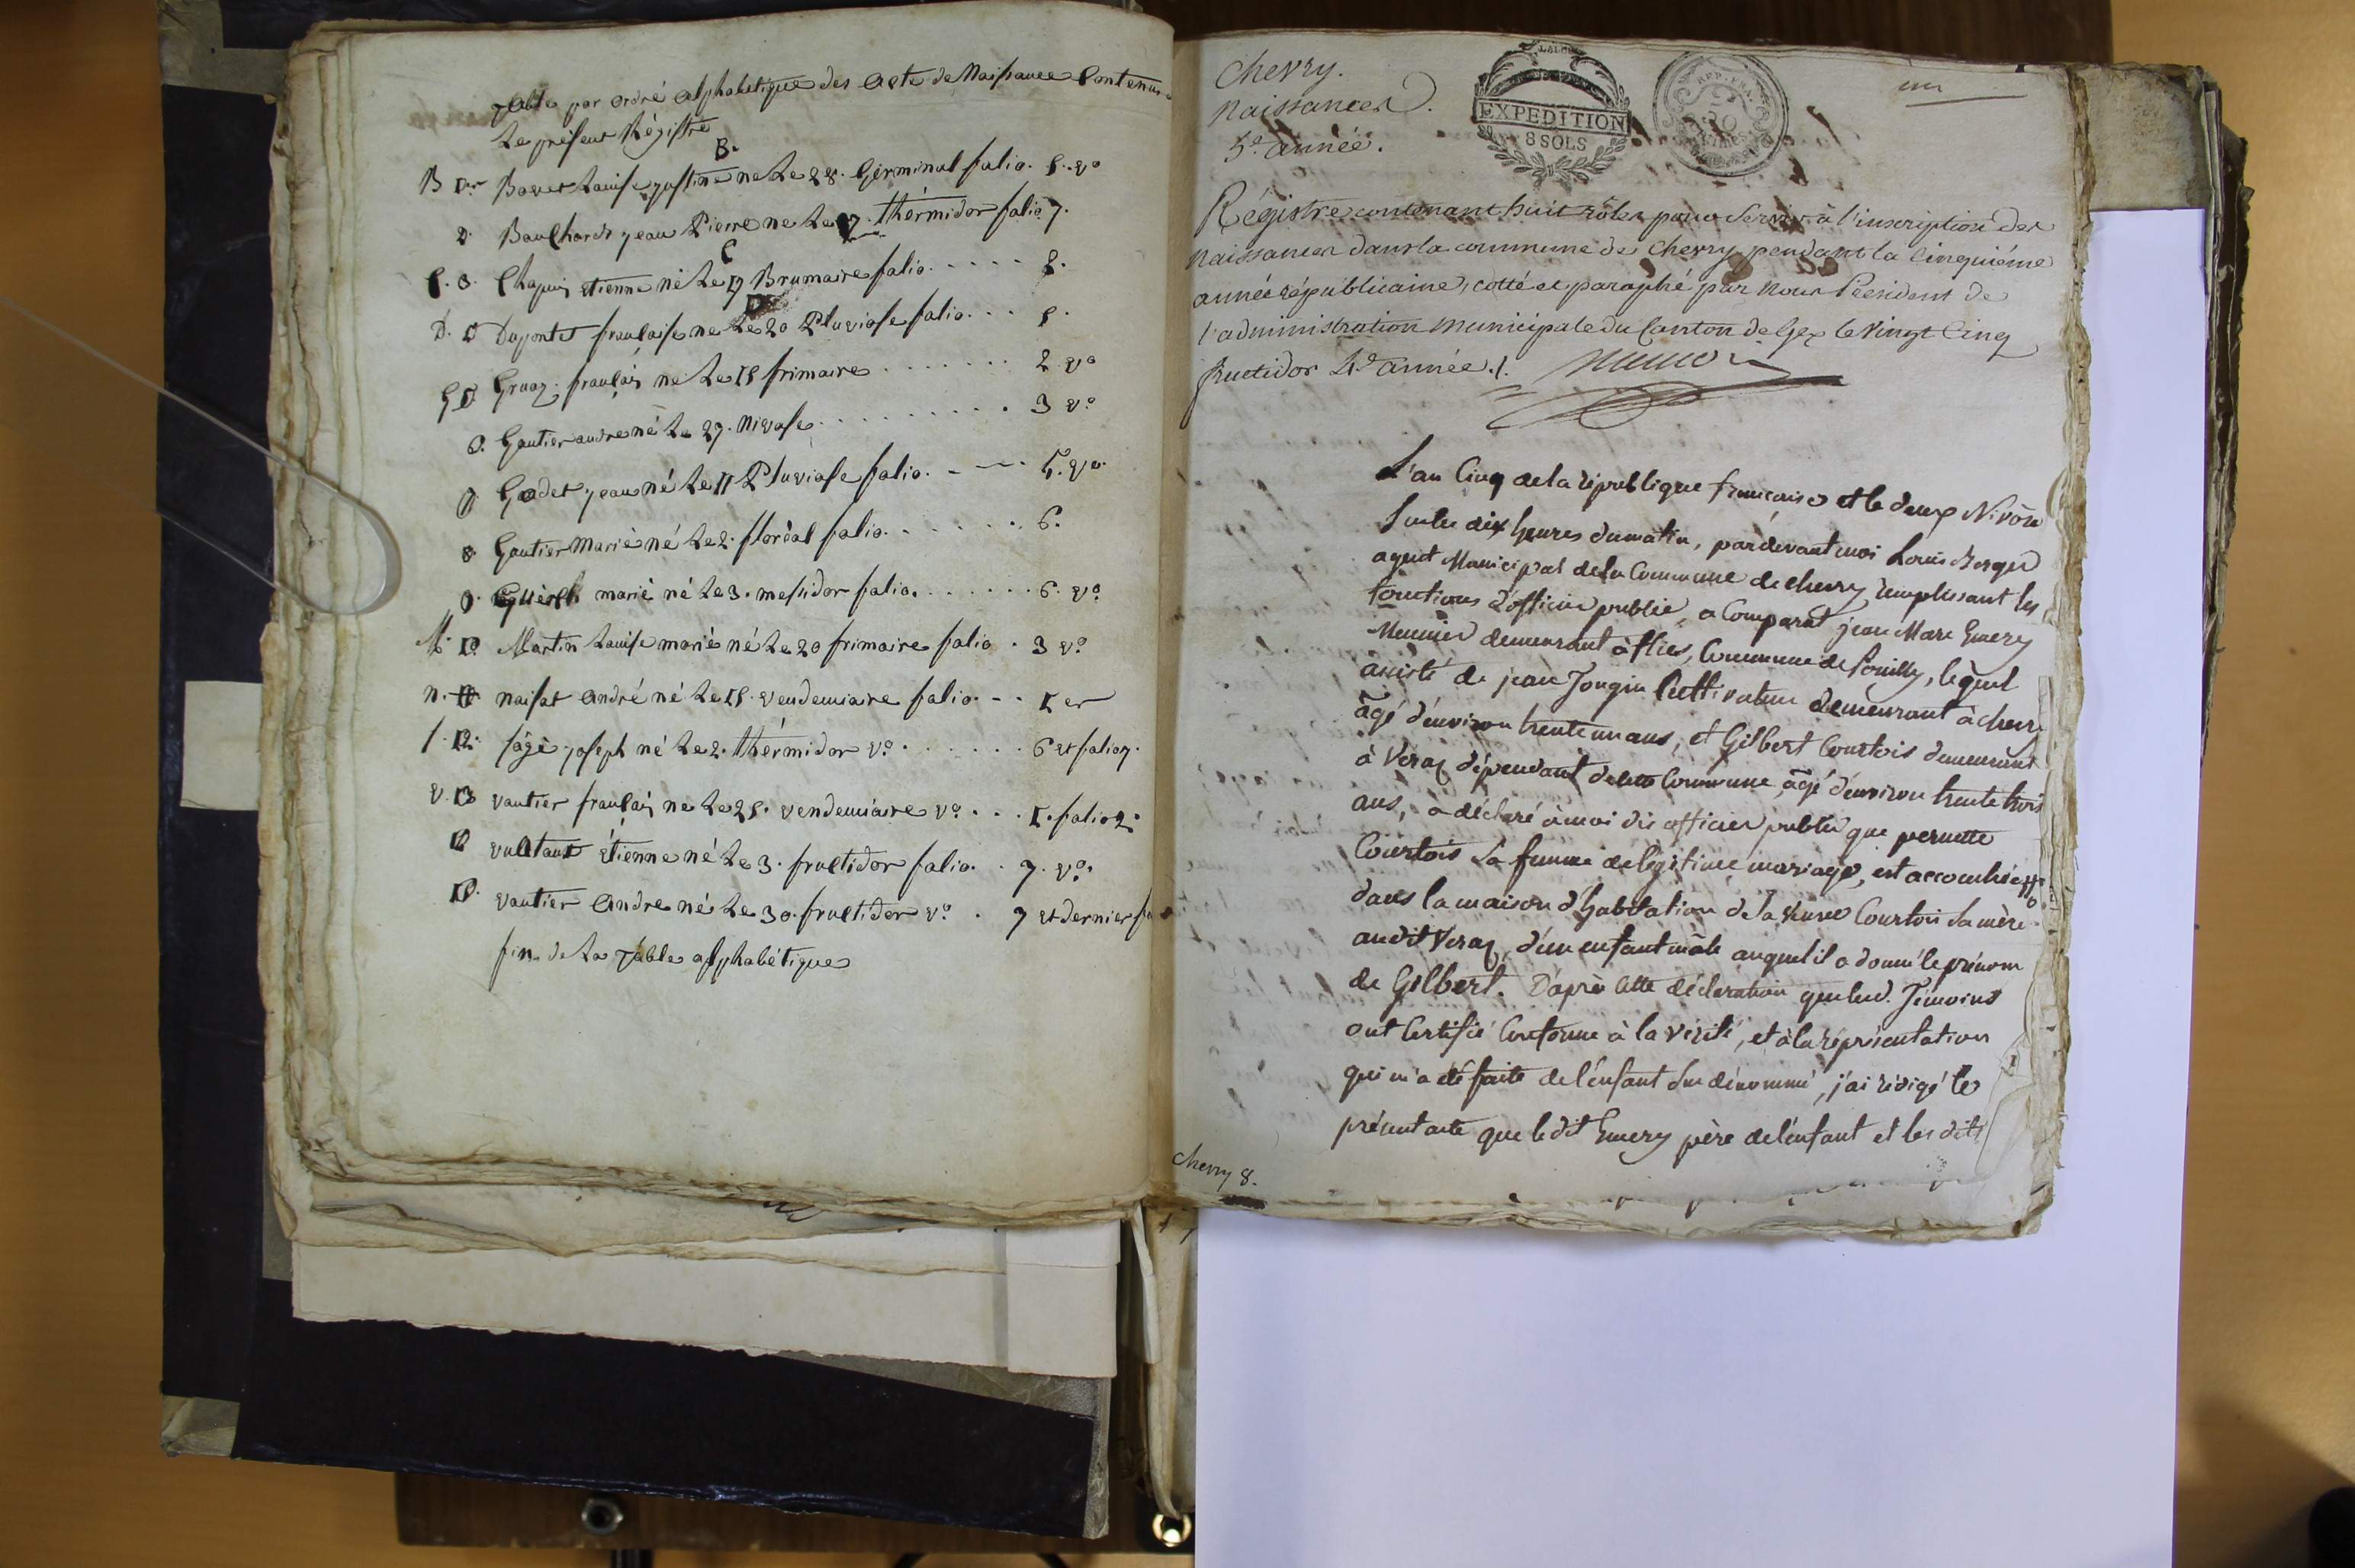 Table par ordré alphabétique des acte de Naissance Contenus
Le présent Régistre
B.
B Dr Bovet Louise justine né Le 28. Gérminal folio. 5. vo
D Jean Pierre né Le 7. thérmidor folio 7.
C
C. D. Chapuis étienne né Le 19 Brumaire folio. 2.
D
D. D Dupontet francoise né Le 20 Pluviose folio. 5.
G D Gruaz françois né Le 15 frimaire 2 vo
D. Gautier andre né Le 29. Nivose 3 vo
D Godet jean né Le 11 Pluviose folio. 4. vo
D Gautier Marie né Le 2. floréal folio. 6.
D marié né Le 3. messidor folio. 6. vo
M. D Martin Louise marié né Le 20 frimaire folio 3 vo
n. D naisat andré né Le 15. vendemiaire folio. 1 er
f. D. joseph né Le 2. thérmidor vo. 6 et folio 7.
V. D vautier françois né Le 25. vendemiaire vo 1. folio 2.
D étienne né Le 3. fructidor folio. 7. vo.
D. vautier andre né Le 30. fructidor vo. 7 et dernier fo
fin de La Table alphabétique
Chevry.
Naissances.
5e année.
EXPEDITION
8 SOLS
REP. FRA.
un
Régistre contenant huit rôles pour servir à l'inscription des
Naissances dans la commune de Chevry pendant la Cinquiéme
année républicaine, cotté et paraphé par Nous President de
l'administration Municipale du Canton de Gex le Vingt Cinq
fructidor 4e année./.
L'an Cinq de la république françaises et le deux Nivôse
Sur les dix heures du matin, pardevant moi Louis Berger
agent Municipal de la Commune de chevry remplissant les
fonctions d'officier public, a Comparut jean Marc Emery
Meunier demeurant à flies, Commune de Pouilly, lequel
assisté de jean Jongin Cultivateur demeurant à chevry
âgé d'environ trente un ans, et Gilbert Courtois demeurant
à Veraz dépendant de cette Commune, âgé d'environ trente trois
ans, a déclaré à moi dit officier public que pernette
Courtois sa femme de légitime mariage, est accouchée
dans la maison d'habitation de la veuve Courtois sa mère
audit Veraz, d'un enfant mâle auquel il a donné le prénom
de Gilbert. D'après cette déclaration que lesd. Témoins
ont Certifié Conforme à la Vérité, et à la réprésentation
qui m'a été faite de l'enfant sus dénommé, j'ai rédigé le
présent acte que le dit Emery père de l'enfant et les dits
Chevry 8.